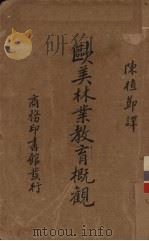 歐美林業教育概觀
陳植鄭譯
商務印書館發行